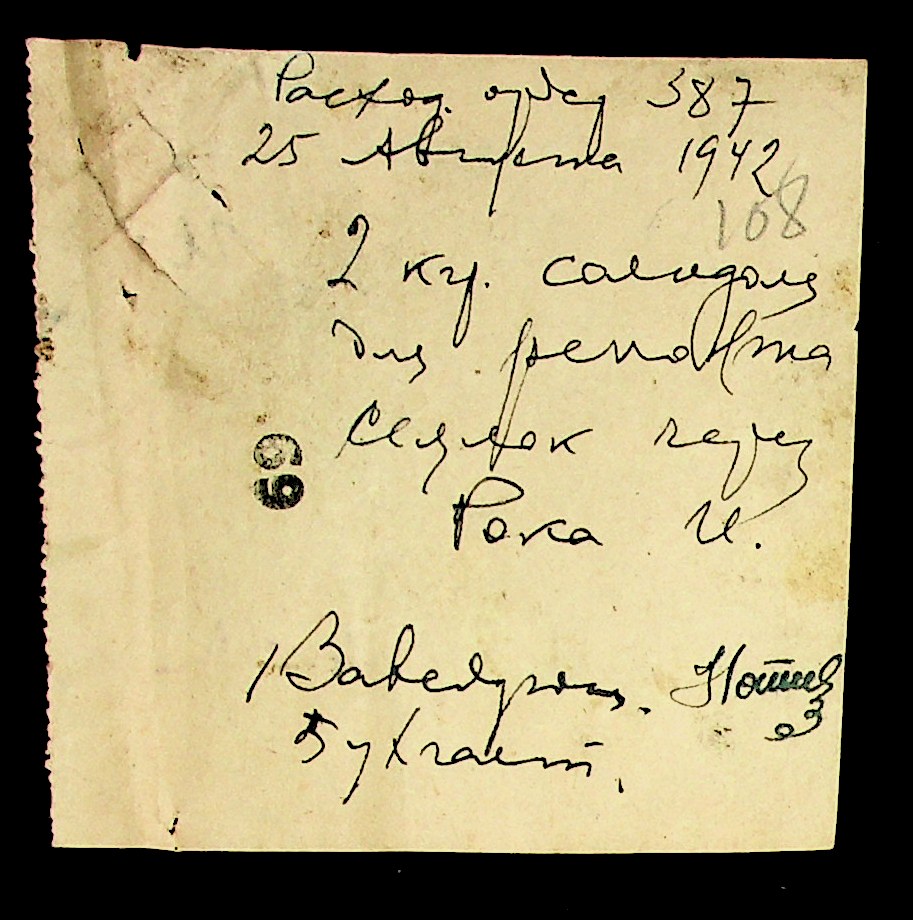 Расход. ордер 387
25 Августа 1942
108
2 кг. солидоля
для ремонта
сеялок через
69
Рака И.
Заведующ.
Бухгалт.